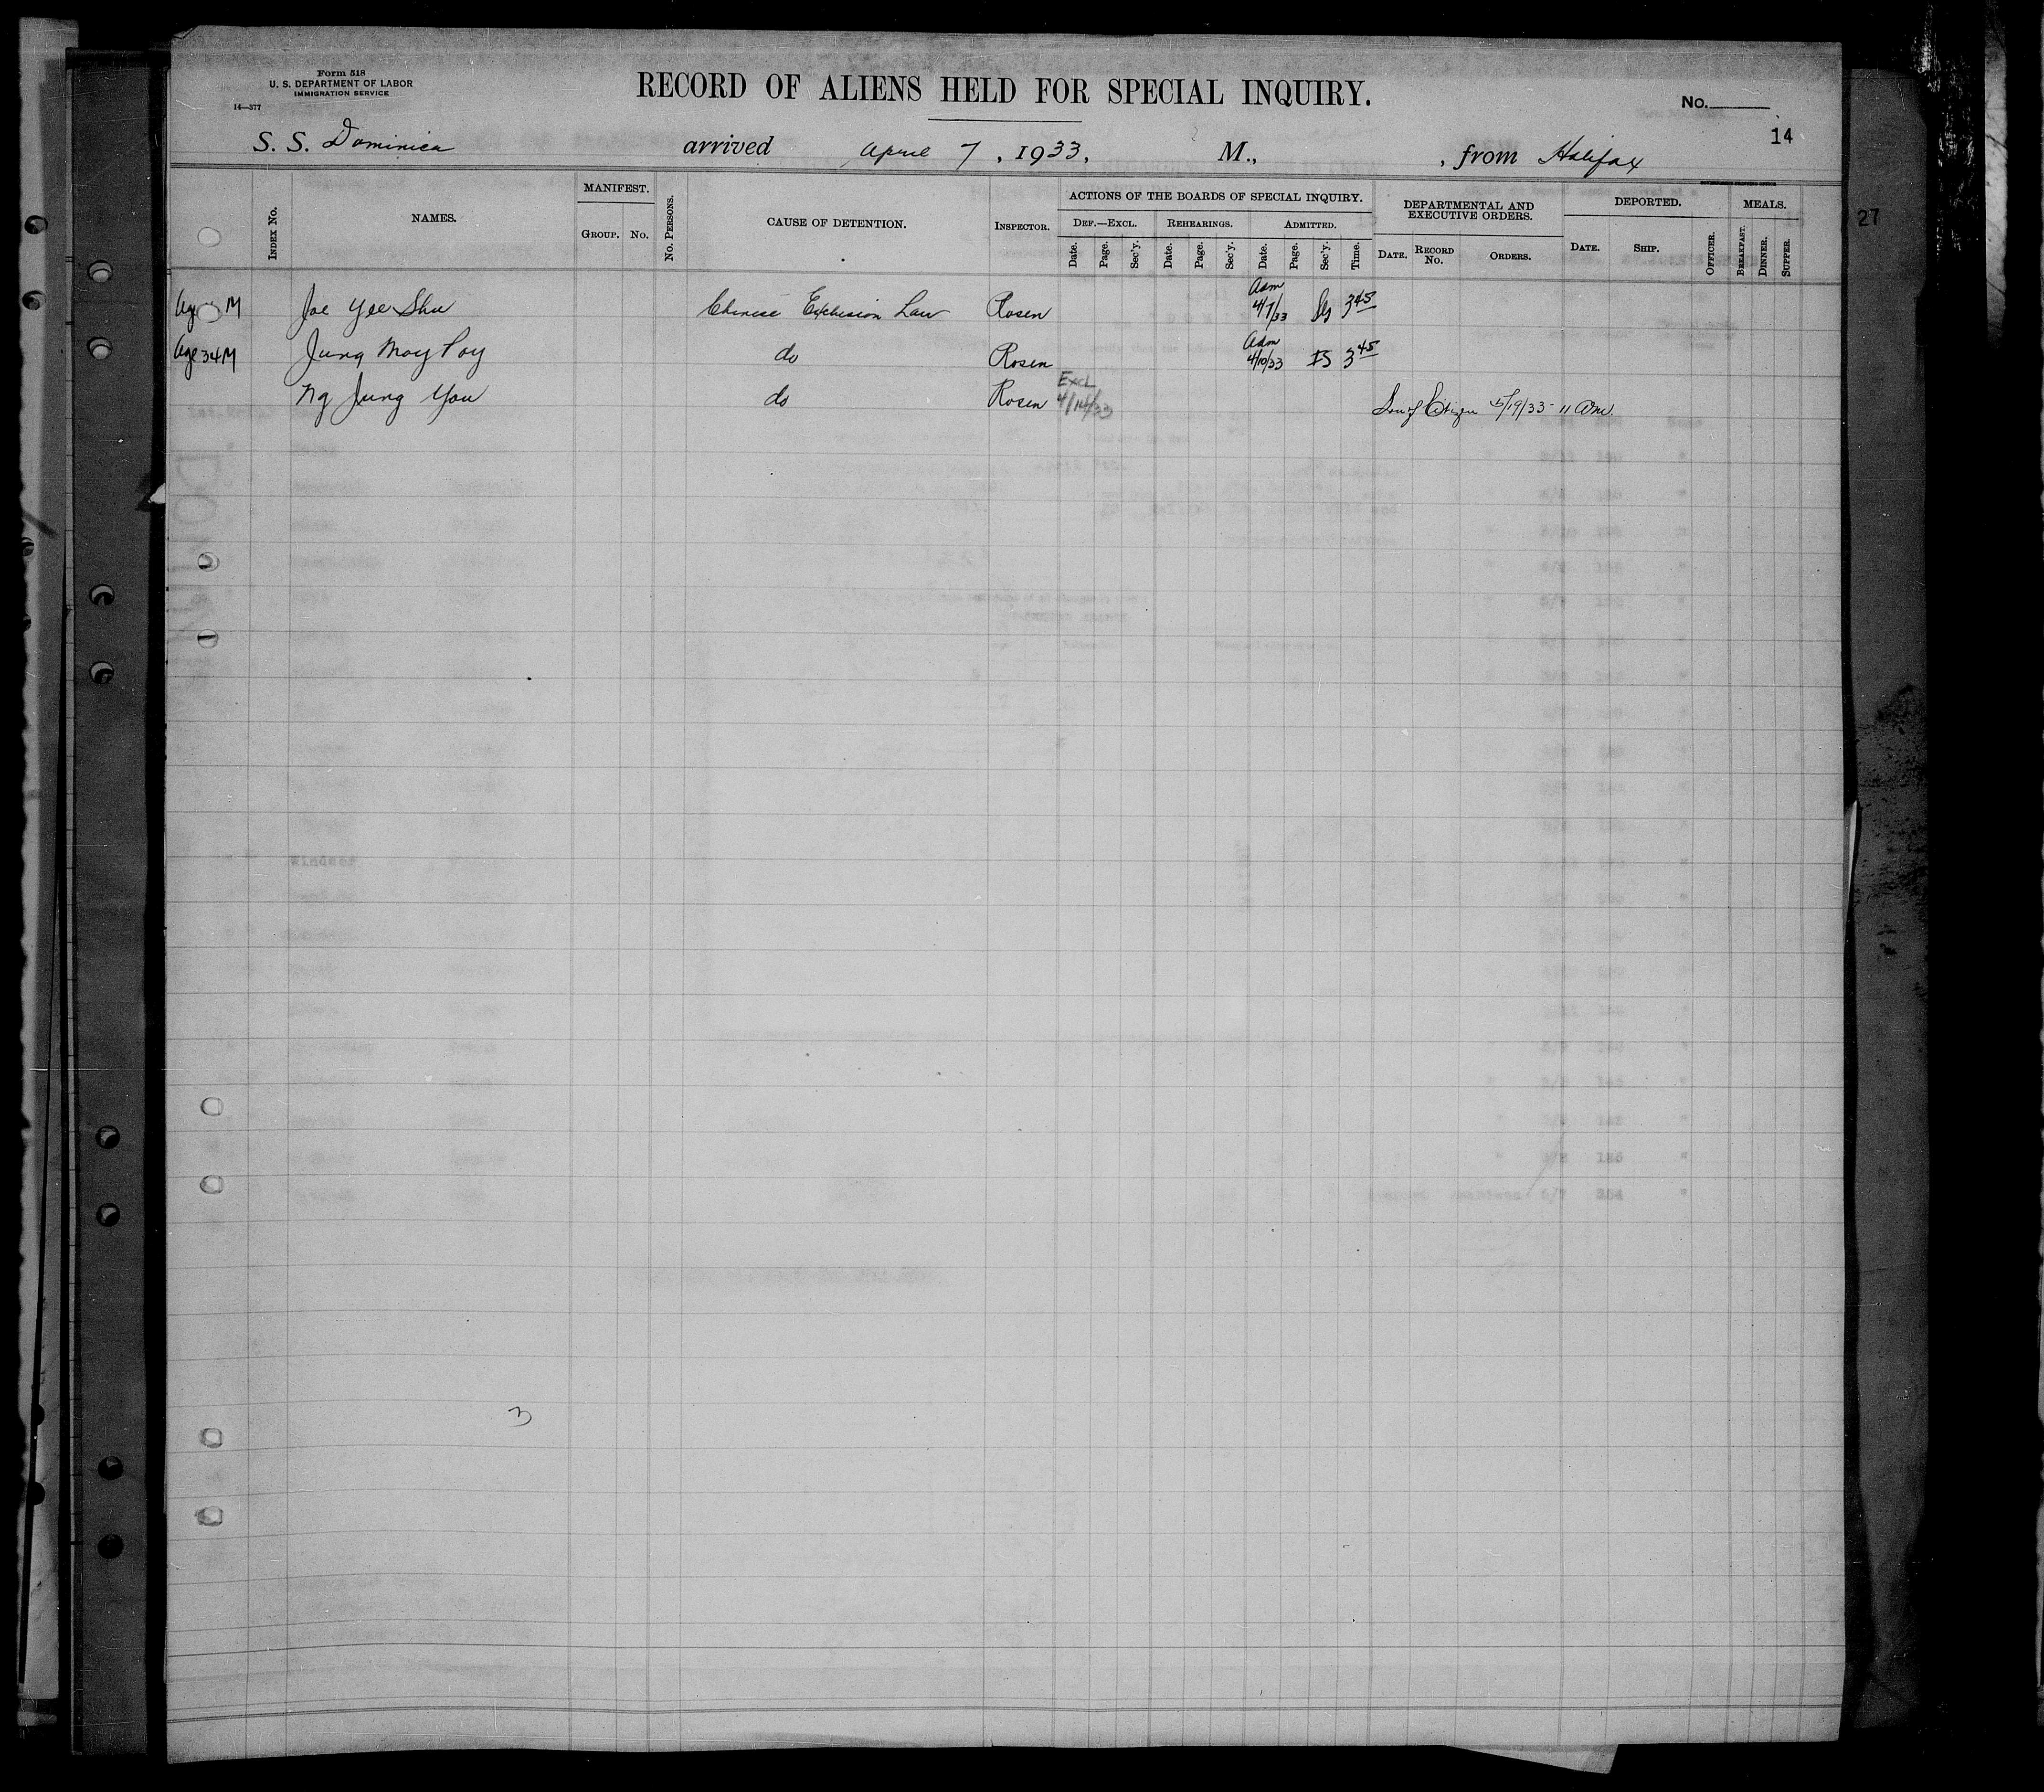 Form 518
U. S. DEPARTMENT OF LABOR
IMMIGRATION SERVICE
14—377
RECORD OF ALIENS HELD FOR SPECIAL INQUIRY.
No.
14
S. S. Dominica arrived April 7, 1933, M., , from Halifax
27
INDEX NO.
NAMES.
MANIFEST.
GROUP. NO.
NO. PERSONS.
CAUSE OF DETENTION.
INSPECTOR.
ACTIONS OF THE BOARDS OF SPECIAL INQUIRY.
DEF.—EXCL. REHEARINGS. ADMITTED.
Date. Page. Sec'y. Date. Page. Sec'y. Date. Page. Sec'y. Time.
DEPARTMENTAL AND
EXECUTIVE ORDERS.
DATE. RECORD NO. ORDERS.
DEPORTED.
DATE. SHIP. OFFICER.
MEALS.
BREAKFAST. DINNER. SUPPER.
M Joe Yee Shu Chinese Exclusion Law Rosen Adm 4/7/33 3 45
Age 34 M Jung Moy Poy do Rosen Adm 4/10/33 IS 3 45
Ng Jung You do Rosen Excl 4/14/33 Son of Citizen 5/19/33 - 11 AM.
3